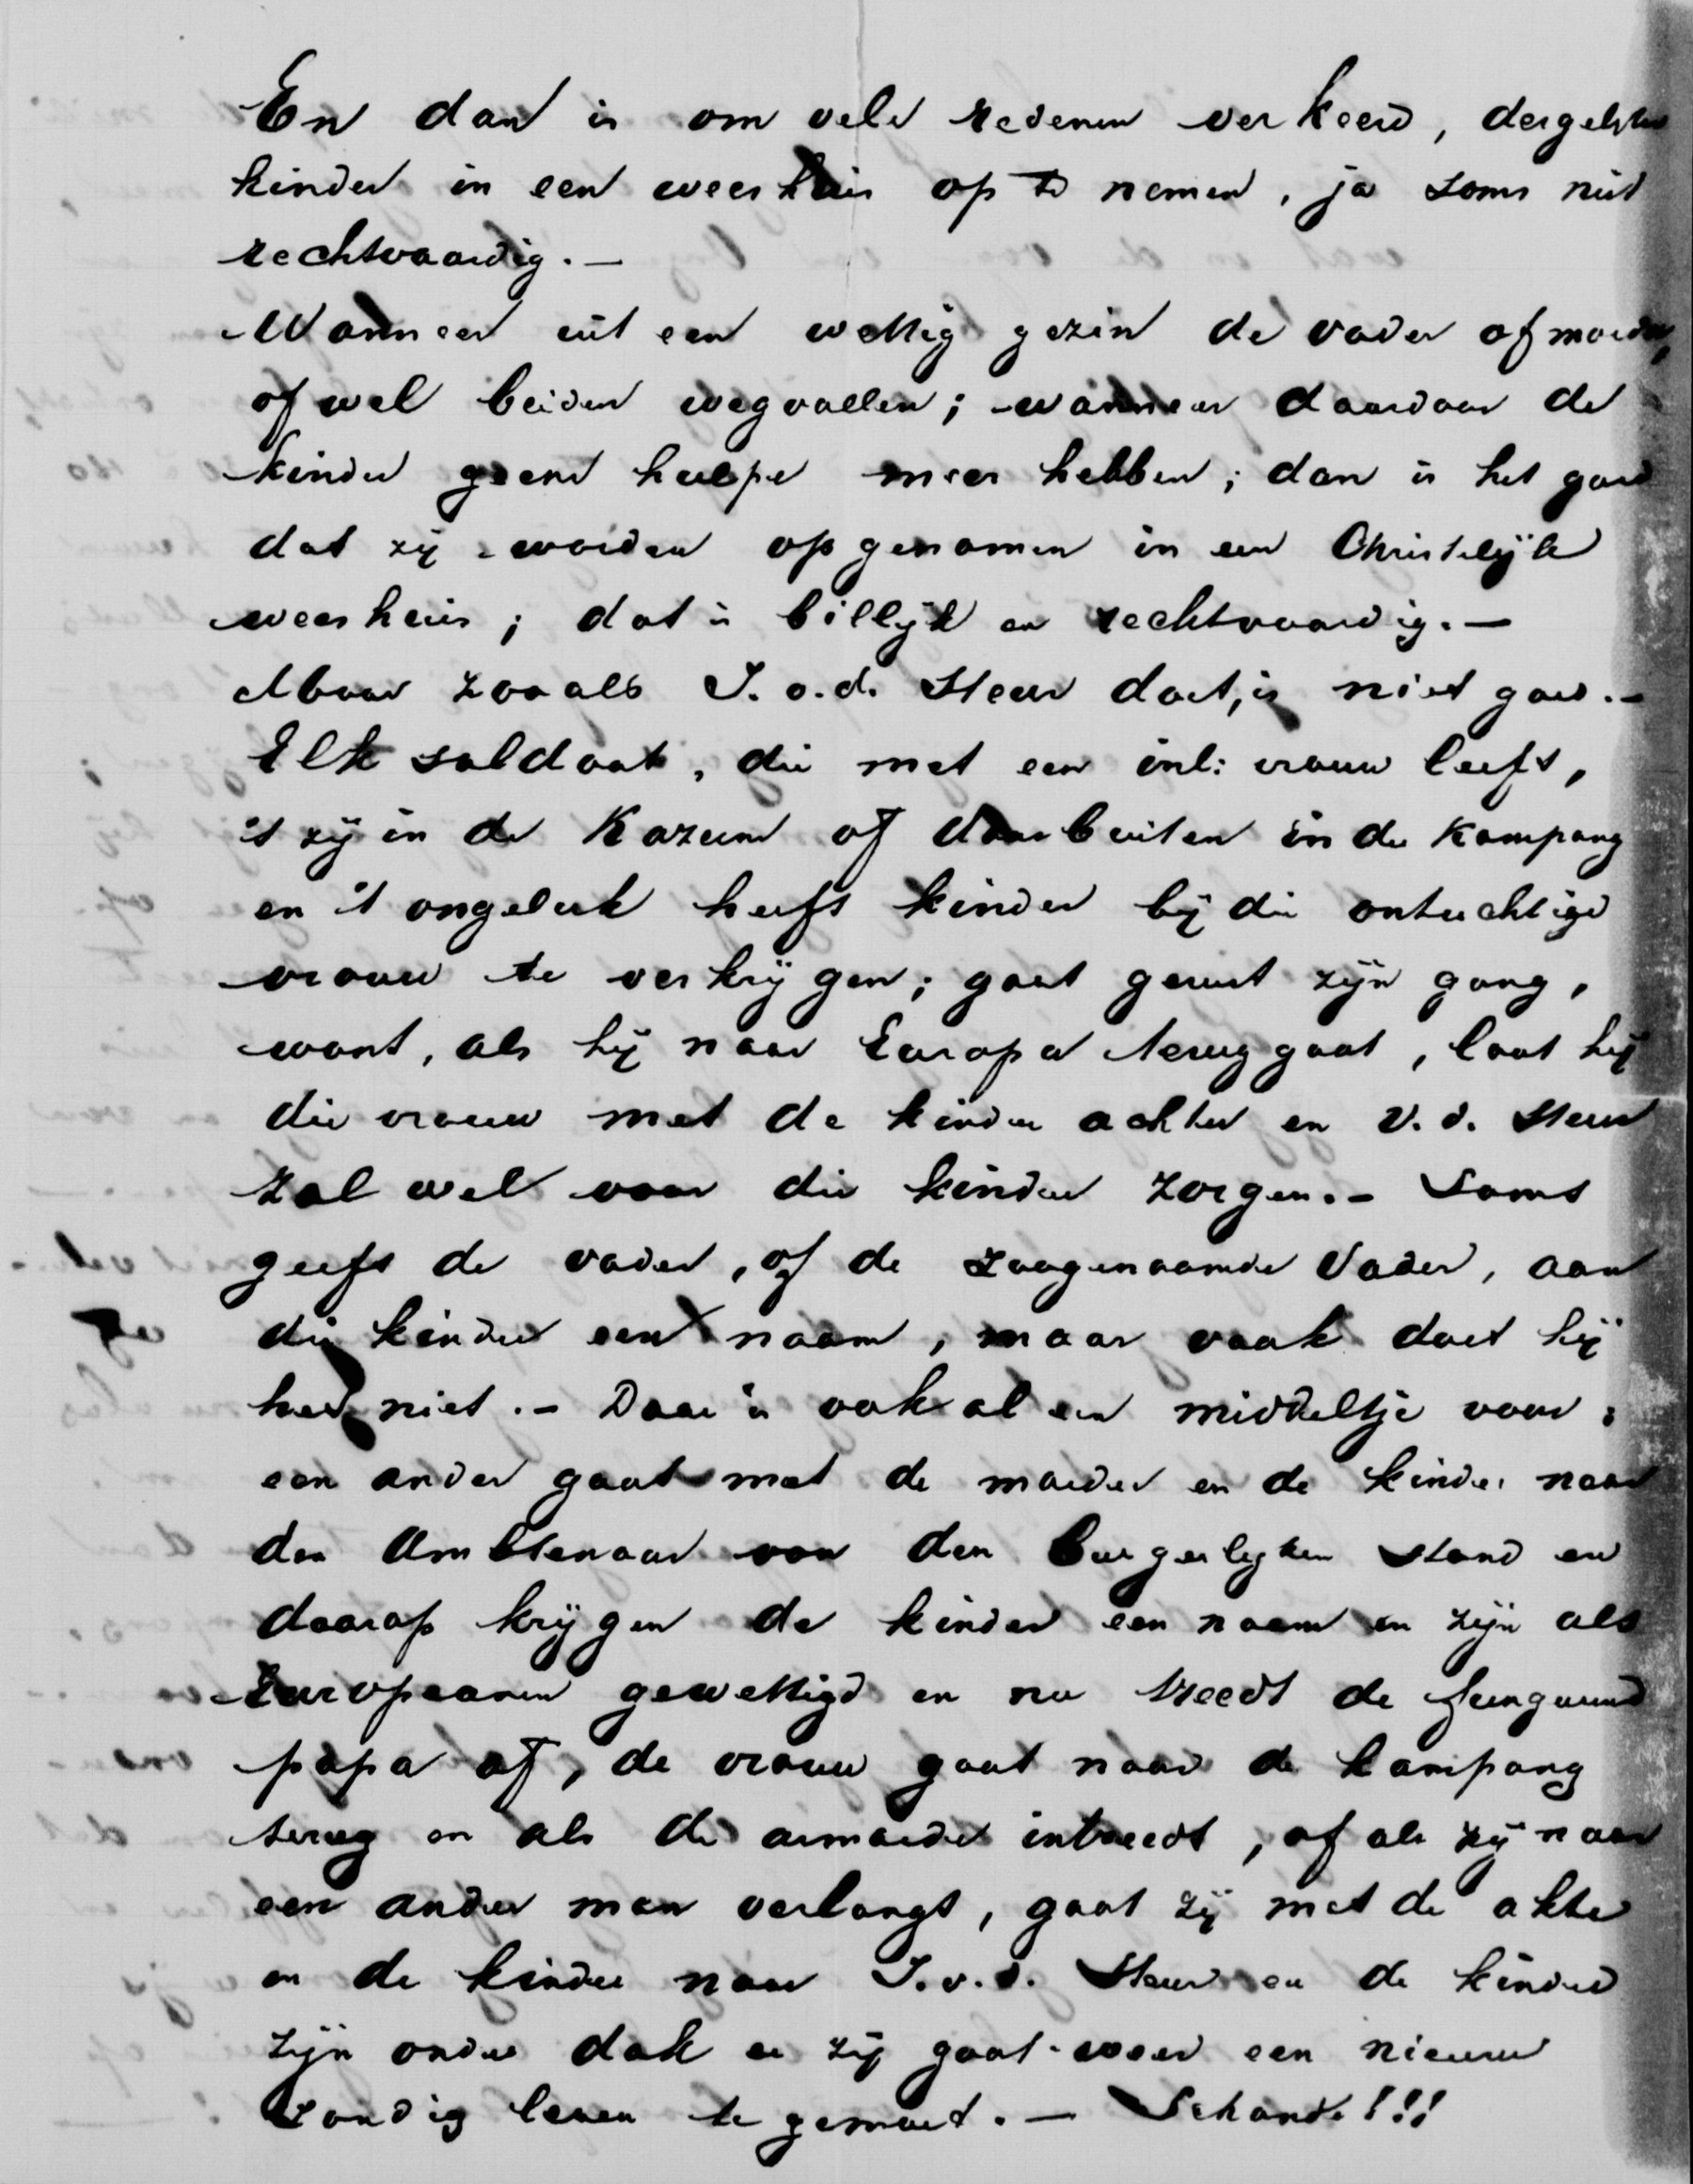 En dan is om vele redenen verkeerd, dergelijke
kinder in een weeshuis op te nemen, ja soms niet
rechtvaardig. —
Wanneer uit een wettig gezin de vader of moeder,
ofwel beiden wegvallen; wanneer daardoor de
kinder geene hulpe meer hebben; dan is het goed
dat zij worden opgenomen in een Christelijk
weeshuis; dat is billijk en rechtvaardig. —
Maar zooals J. v. d. Steur doet, is niet goed. –
Elk soldaat, die met een inl: vrouw leeft,
't zij in de Kazerne of daarbuiten in de Kampong
en 't ongeluk heeft kinder bij die ontuchtige
vrouw te verkrijgen; gaat gerust zijn gang,
want, als hij naar Europa teruggaat, laat hij
die vrouw met de kinder achter en v. d. Steur
zal wel voor die kinder zorgen. – Soms
geeft de vader, of de zoogenaamde Vader, aan
die kinder een naam, maar vaak doet hij
het niet. – Daar is ook al een middeltje voor:
een ander gaat met de moeder en de kinder naar
den Ambtenaar van den Burgerlijken stand en
daarop krijgen de kinder een naam en zijn als
Europeanen gewettigd en nu treedt de fungeerend
papa af, de vrouw gaat naar de kampong
terug en als de armoede intreedt, of als zij naar
een ander man verlangt, gaat zij met de akte
en de kinder naar J. v. d. Steur en de kinder
zijn onder dak en zij gaat weer een nieuw
zondig leven te gemoet. — Schande!!!